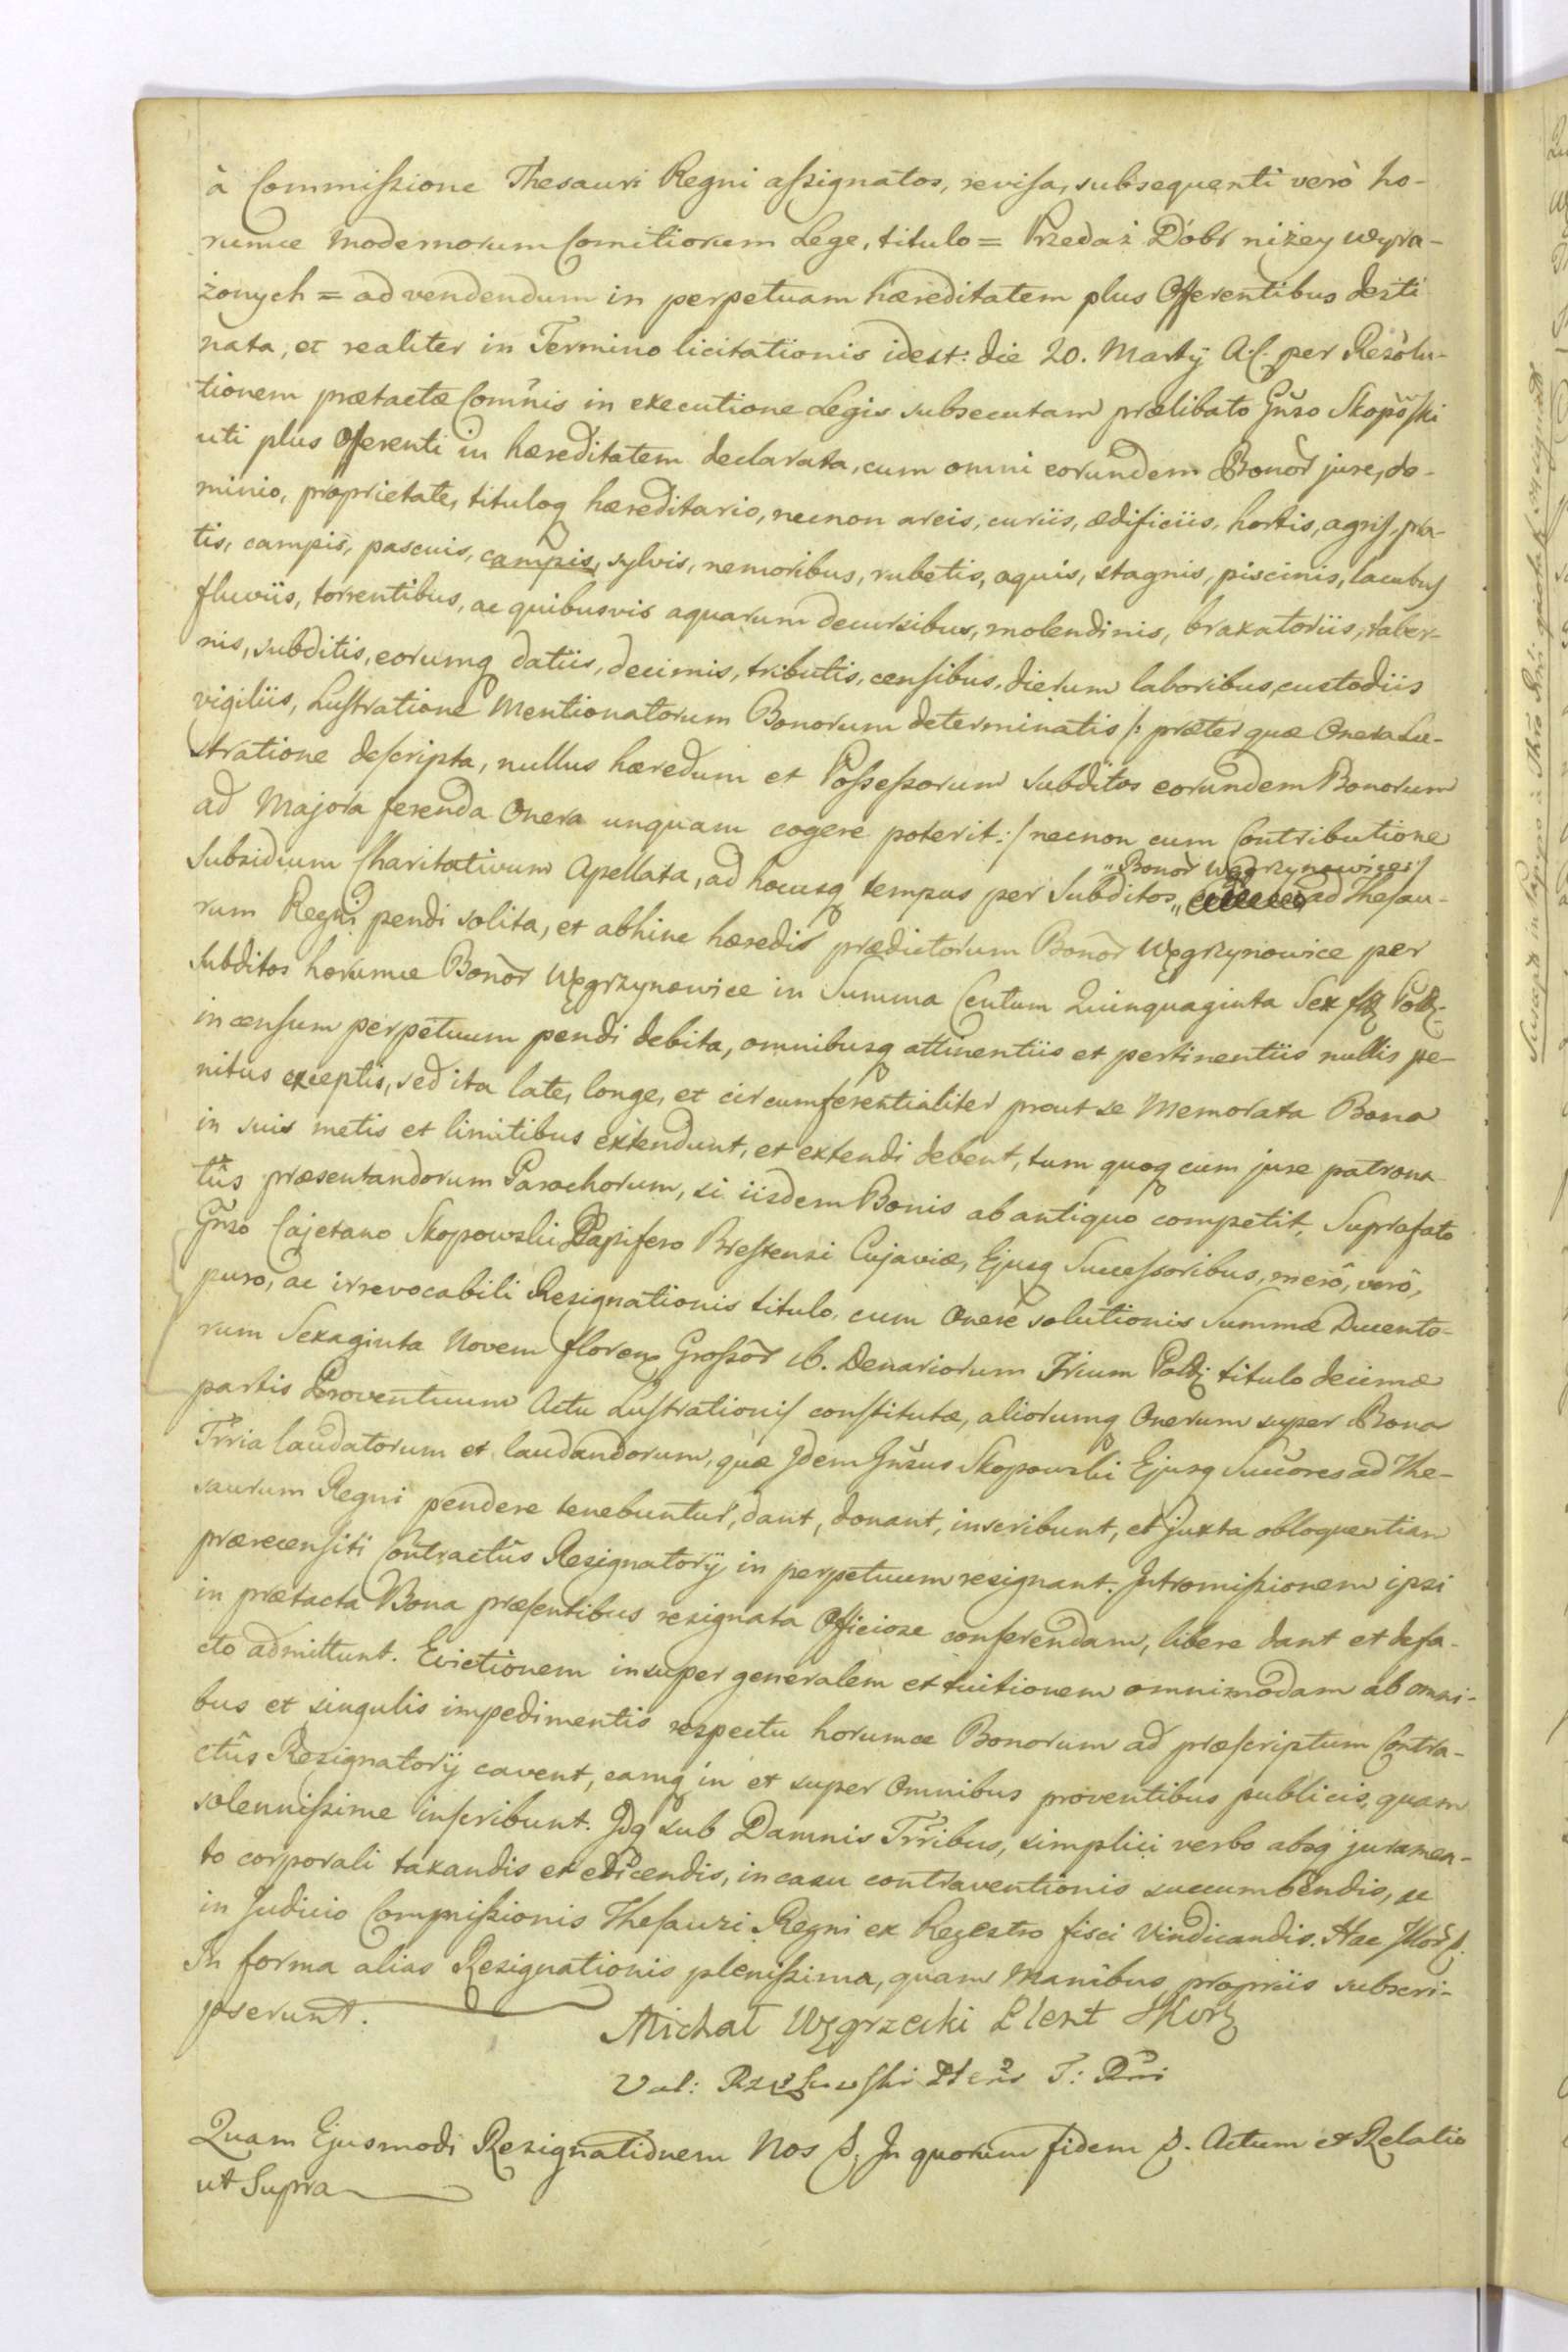 à Commissione Thesauri Regni assignatos, revisa, subsequenti verò ho-
rumce modernorum Comitiorum Lege, titulo = Przedaż Dóbr niżey wyra-
żonych = ad vendendum in perpetuam hæreditatem plus Offerentibus desti
nata, et realiter in Termino licitationis idest: die 20. Martij A. C. per Resolu-
tionem prætactæ Comñis in executione Legis subsecutam prælibato Gñso Skopõski
uti plus Offerenti in hæreditatem declarata, cum omni eorundem Bonor̃ jure, do-
minio, proprietate, tituloq hæreditario, necnon areis, curiis, ædificiis, hortis, agris, pra-
tis, campis, pascuis, campis, sylvis, nemoribus, rubetis, aquis, stagnis, piscinis, lacubus
fluviis, torrentibus, ac quibusvis aquarum decursibus, molendinis, braxatoriis, taber-
nis, subditis, eorumq datiis, decimis, tributis, censibus, dierum laboribus, custodiis
vigiliis, Lustratione Mentionatorum Bonorum determinatis /: præter quæ Onera Lu-
stratione descripta, nullus hæredum et Possessorum Subditos eorundem Bonorum
ad Majora ferenda Onera unquam cogere poterit :/ necnon cum Contributione
Subsidium Charitativum Apellata, ad hocusq tempus per Subditos „Bonor̃ Węgrzynowice:/ ad Thesau-
rum Regni pendi solita, et abhinc hæredis prædictorum Bonor̃ Węgrzynowice per
Subditos horumce Bonor̃ Węgrzynowice in Summa Centum Quinquaginta Sex fl Pol
in censum perpetuum pendi debita, omnibusq attinentiis et pertinentiis nullis pe-
nitus exceptis, sed ita late, longe, et circumferentialiter prout se Memorata Bona
in suis metis et limitibus extendunt, et extendi debent, tum quoq cum jure patrona
tûs præsentandorum Parochorum, si iisdem Bonis ab antiquo competit, Suprafato
Gñso Cajetano Skopowski Dapifero Brestensi Cujaviæ, Ejusq Successoribus, merô, verô,
puro, ac irrevocabili Resignationis titulo, cum Onere solutionis Summæ Ducento-
rum Sexaginta Novem floren Grossor̃ 16. Denariorum Trium Pol titulo decimæ
partis Proventuum Actu Lustrationis constitutæ, aliorumq Onerum super Bona
Trria laudatorum et laudandorum, quæ Idem Gñsus Skopowski Ejusq Succores ad The-
saurum Regni pendere tenebuntur, dant, donant, inscribunt, et juxta obloquentiam
præreceniti Contractûs Resignatorij in perpetuum resignant. Intromissionem ipsi
in prætacta Bona præsentibus resignata Officiose conferendam, libere dant et defa-
cto admittunt. Evictionem insuper generalem et tuitionem omnimodam ab omni-
bus et singulis impedimentis respectu horumce Bonorum ad præscriptum Contra-
ctûs Resignatorij cavent, eamq in et super Omnibus proventibus publicis, quam
solennissime inscribunt. Idq sub Damnis Trribus, simplici verbo absq juramen-
to corporali taxandis et edicendis, in casu contraventionis succumbendis, ac
in Judicio Commissionis Thesauri Regni ex Regestro fisci Vindicandis. Hac
In forma alias Resignationis plenissima, quam Manibus propriis subscri-
pserunt.
Michał Węgrzecki Plent SKor
Val: T: Rni
Quam Ejusmodi Resignationem Nos &. In quorum fidem &. Actum et Relatio
ut Supra
Suscepta in Papyro à Thro Rni